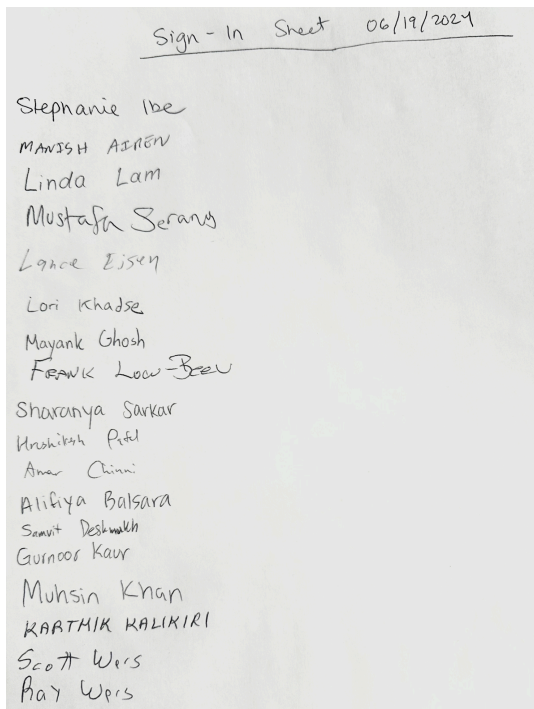 Sign-In Sheet 06/19/2024
Stephanie Ibe
MANISH AIREN
Linda Lam
Mustafa Serang
Lance Eisen
Lori Khadse
Mayank Ghosh
FRANK LOW-BEER
Sharanya Sarkar
Hrushikesh
Amar Chinni
Alifiya Balsara
Samvit Deshmukh
Gurnoor Kaur
Muhsin Khan
KARTHIK KALIKIRI
Scott Weis
Ray Weis